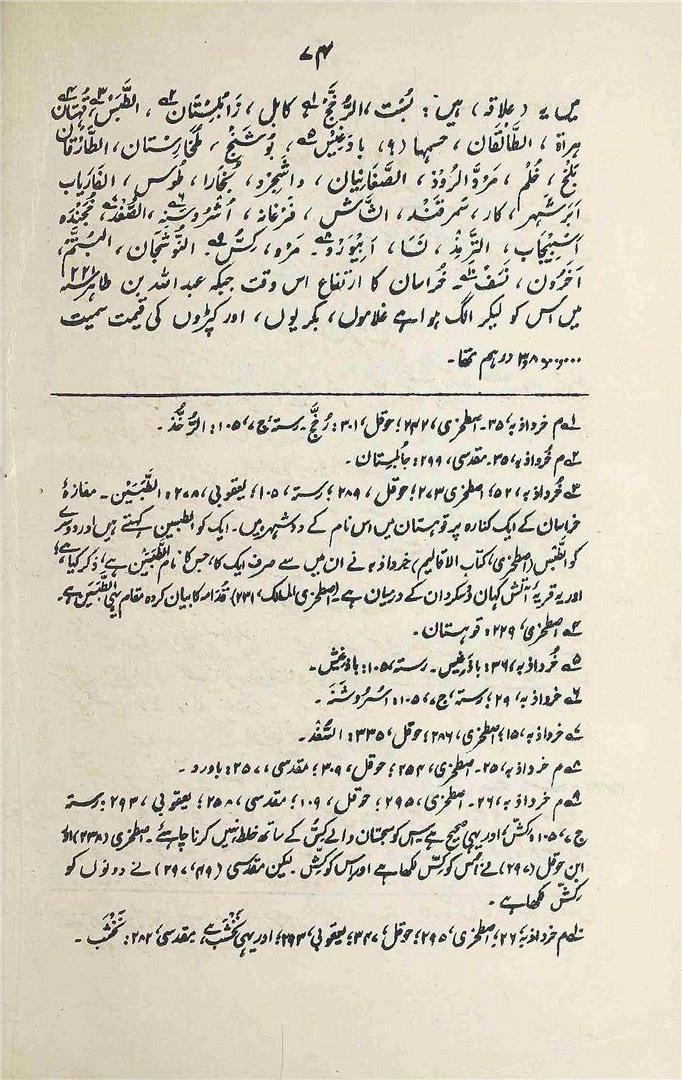 ۷۴
میں یہ (علاقہ) ہیں: بُسْت، الرُّخَّج؎۱ کابل، زَابُلِسْتَان؎۲، الطَّبَسَین؎۳، قُہِسْتَان؎۴
ہراۃ، الطَّالَقان، جسمہا (؟)، بادَغِیْس؎۵، بُوشَنْج، طُخَارِسْتان، الطَّارَقَان
بَلْخ، خُلْم، مَرْوُ الرُّوذ، الصَّغَانِیَان، واشْجِرْد، بُخَارا، طُوس، الفَارْیاب
اَبَرْشَہر، کار، سَمرقَنْد، الشَّاش، فَرْغَانہ، اُشْرُوسَنہ؎۶، الصُّغْد؎۷، خُجَنْدہ
اَسْبِیْجَاب، التِّرمِذ، نَسَا، اَبِیْوَرْد؎۸۔ مَرْو، کِسّ؎۹۔ النُّوشَجَان، البُتَّم،
آخَرُون، نَسَفْ؎۱۰۔ خُراسان کا ارتفاع اس وقت جبکہ عبد اللہ بن طاہر ۲۲۱؁ھ
میں اس کو لیکر الگ ہوا ہے غلاموں، بکریوں، اور کپڑوں کی قیمت سمیت
۳۸۰۰۰۰۰۰ درہم تھا۔
؎۱ م خرداذبہ، ۳۵۔ اصطخری، ۲۴۲؛ حوقل، ۳۰۱: رُخَّج۔ رستہ، ج ۷، ۱۰۵: الرُّخَّذ۔
؎۲ م خُرداذبہ، ۳۵۔ مقدسی، ۲۹۹: جابُلستان۔
؎۳ خُرداذبہ، ۵۲؛ اصطخری ۲۷۳؛ حوقل، ۲۸۹؛ رستہ، ۱۰۵؛ یعقوبی، ۲۷۸: الطَّبَسَیْن۔ مفازۂ
خراسان کے ایک کنارہ پر قوہستان میں اس نام کے دو شہر ہیں۔ ایک کو الطبسین کہتے ہیں اور دوسرے
کو الطَّبَس (اصطخری، کتاب الاقالیم) خرداذبہ نے ان میں سے صرف ایک کا، جس کا نام الطَّبَسَیْن ہے، ذکر کیا ہے؛
اور یہ قریۂ آتش کہان ڈسکردان کے درمیان ہے۔ (اصطخری المسالک، ۲۳۱) قُدامہ کا بیان کردہ مقام یہی الطَّبَسَین ہے۔
؎۴ اصطخری، ۲۲۹: قوہستان۔
؎۵ خُرداذبہ، ۳۶: باذَغِیس۔ رستہ، ۱۰۵: باذغِیْش۔
؎۶ خرداذبہ، ۲۹؛ رستہ، ج ۷، ۱۰۵: اُسْرُوشَنَہ۔
؎۷ خرداذبہ، ۱۵؛ اصطخری، ۲۸۶؛ حوقل، ۳۳۵: السُّغْد۔
؎۸ م خرداذبہ، ۲۵۔ اصطخری، ۲۵۴؛ حوقل، ۳۰۹؛ مقدسی، ۲۵۷: باورد۔
؎۹ م خرداذبہ، ۲۶۔ اصطخری، ۲۹۵؛ حوقل، ۱۰۹؛ مقدسی، ۲۵۸؛ یعقوبی، ۲۹۳؛ رستہ
ج ۷، ۱۰۵: کشّ؛ اور یہی صحیح ہے، جس کو سجستان والے کِسّ کے ساتھ خلط نہیں کرنا چاہئے۔ اصطخری (۲۳۸) اور
ابن حوقل (۲۹۷) نے اُس کو کِسّ لکھا ہے اور اس کو کِشّ۔ لیکن مقدسی (۴۹، ۲۹۷) نے دونوں کو
کِشّ لکھا ہے۔
؎۱۰ م خرداذبہ، ۲۶؛ اصطخری، ۲۹۵؛ حوقل، ۳۴۷؛ یعقوبی، ۲۹۳؛ اور یہی نَخْشَب ہے، مقدسی، ۲۸۲: نَخْشَب۔